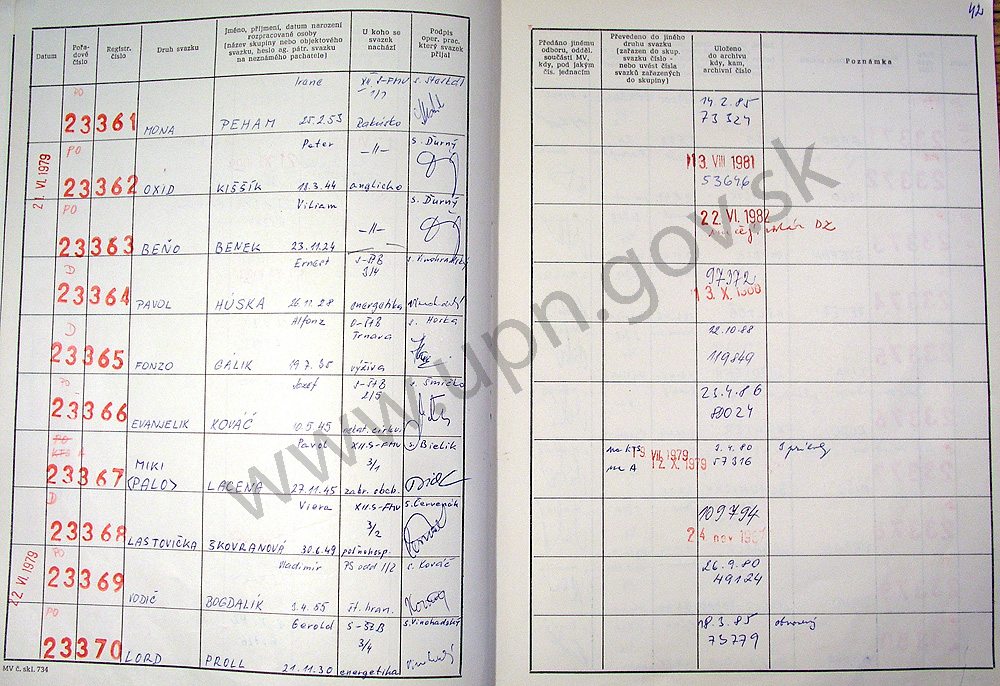 42
Datum
Pořadové číslo
Registr. číslo
Druh svazku
Jméno, příjmení, datum narození rozpracované osoby (název skupiny nebo objektového svazku, heslo ag. pátr. svazku na neznámého pachatele)
U koho se svazek nachází
Podpis oper. prac. který svazek přijal
Předáno jinému odboru, odděl. součásti MV, kdy, pod jakým čís. jednacím
Převedeno do jiného druhu svazku (zařazen do skup. svazku číslo - nebo uvést čísla svazků zařazených do skupiny)
Uloženo do archivu kdy, kam, archivní číslo
Poznámka
21. VI. 1979
PO
23361 MONA PEHAM 25.2.53 Rakúsko
14.2.85
73324
PO Peter -//- s. Ďurný
23362 OXID KIŠŠÍK 18.3.44 anglicko
13. VIII 1981
53646
PO Viliam -//- s. Ďurný
23363 BEŇO BENEK 23.11.24
22. VI. 1982
D Ernest S-ŠtB 3/4
23364 PAVOL HÚSKA 26.11.28 energetika
97372
13. X.
D Alfonz O-ŠtB Trnava s. Horka
23365 FONZO GÁLIK 19.7.35 výživa
12.10.88
119849
PO Jozef S-ŠtB 2/5
23366 EVANJELIK KOVÁČ 10.5.45
23.4.86
PO
23367 MIKI (PALO) Pavol LACENA 27.11.45 XII.S-FMV 3/1 s. Bielik zahr. obch.
na KTS 19 VII 1979
na A 12. X. 1979
3.4.80
57316
D Viera XII.S-FMV 3/2 s. Červenák
23368 LASTOVIČKA ŠKOVRANOVÁ 30.6.49 poľnohosp.
109794
24. nov
22. VI. 1979
PO Vladimír PS odd 1/2 s. Kováč
23369 VODIČ BOGDALÍK 3.4.55 št. hran.
26.9.80
49124
PO Gerold S-ŠtB 3/4 s. Vinohradský
23370 LORD PROLL 21.11.30 energetika
18.3.85
73779
MV č. skl. 734
www.upn.gov.sk